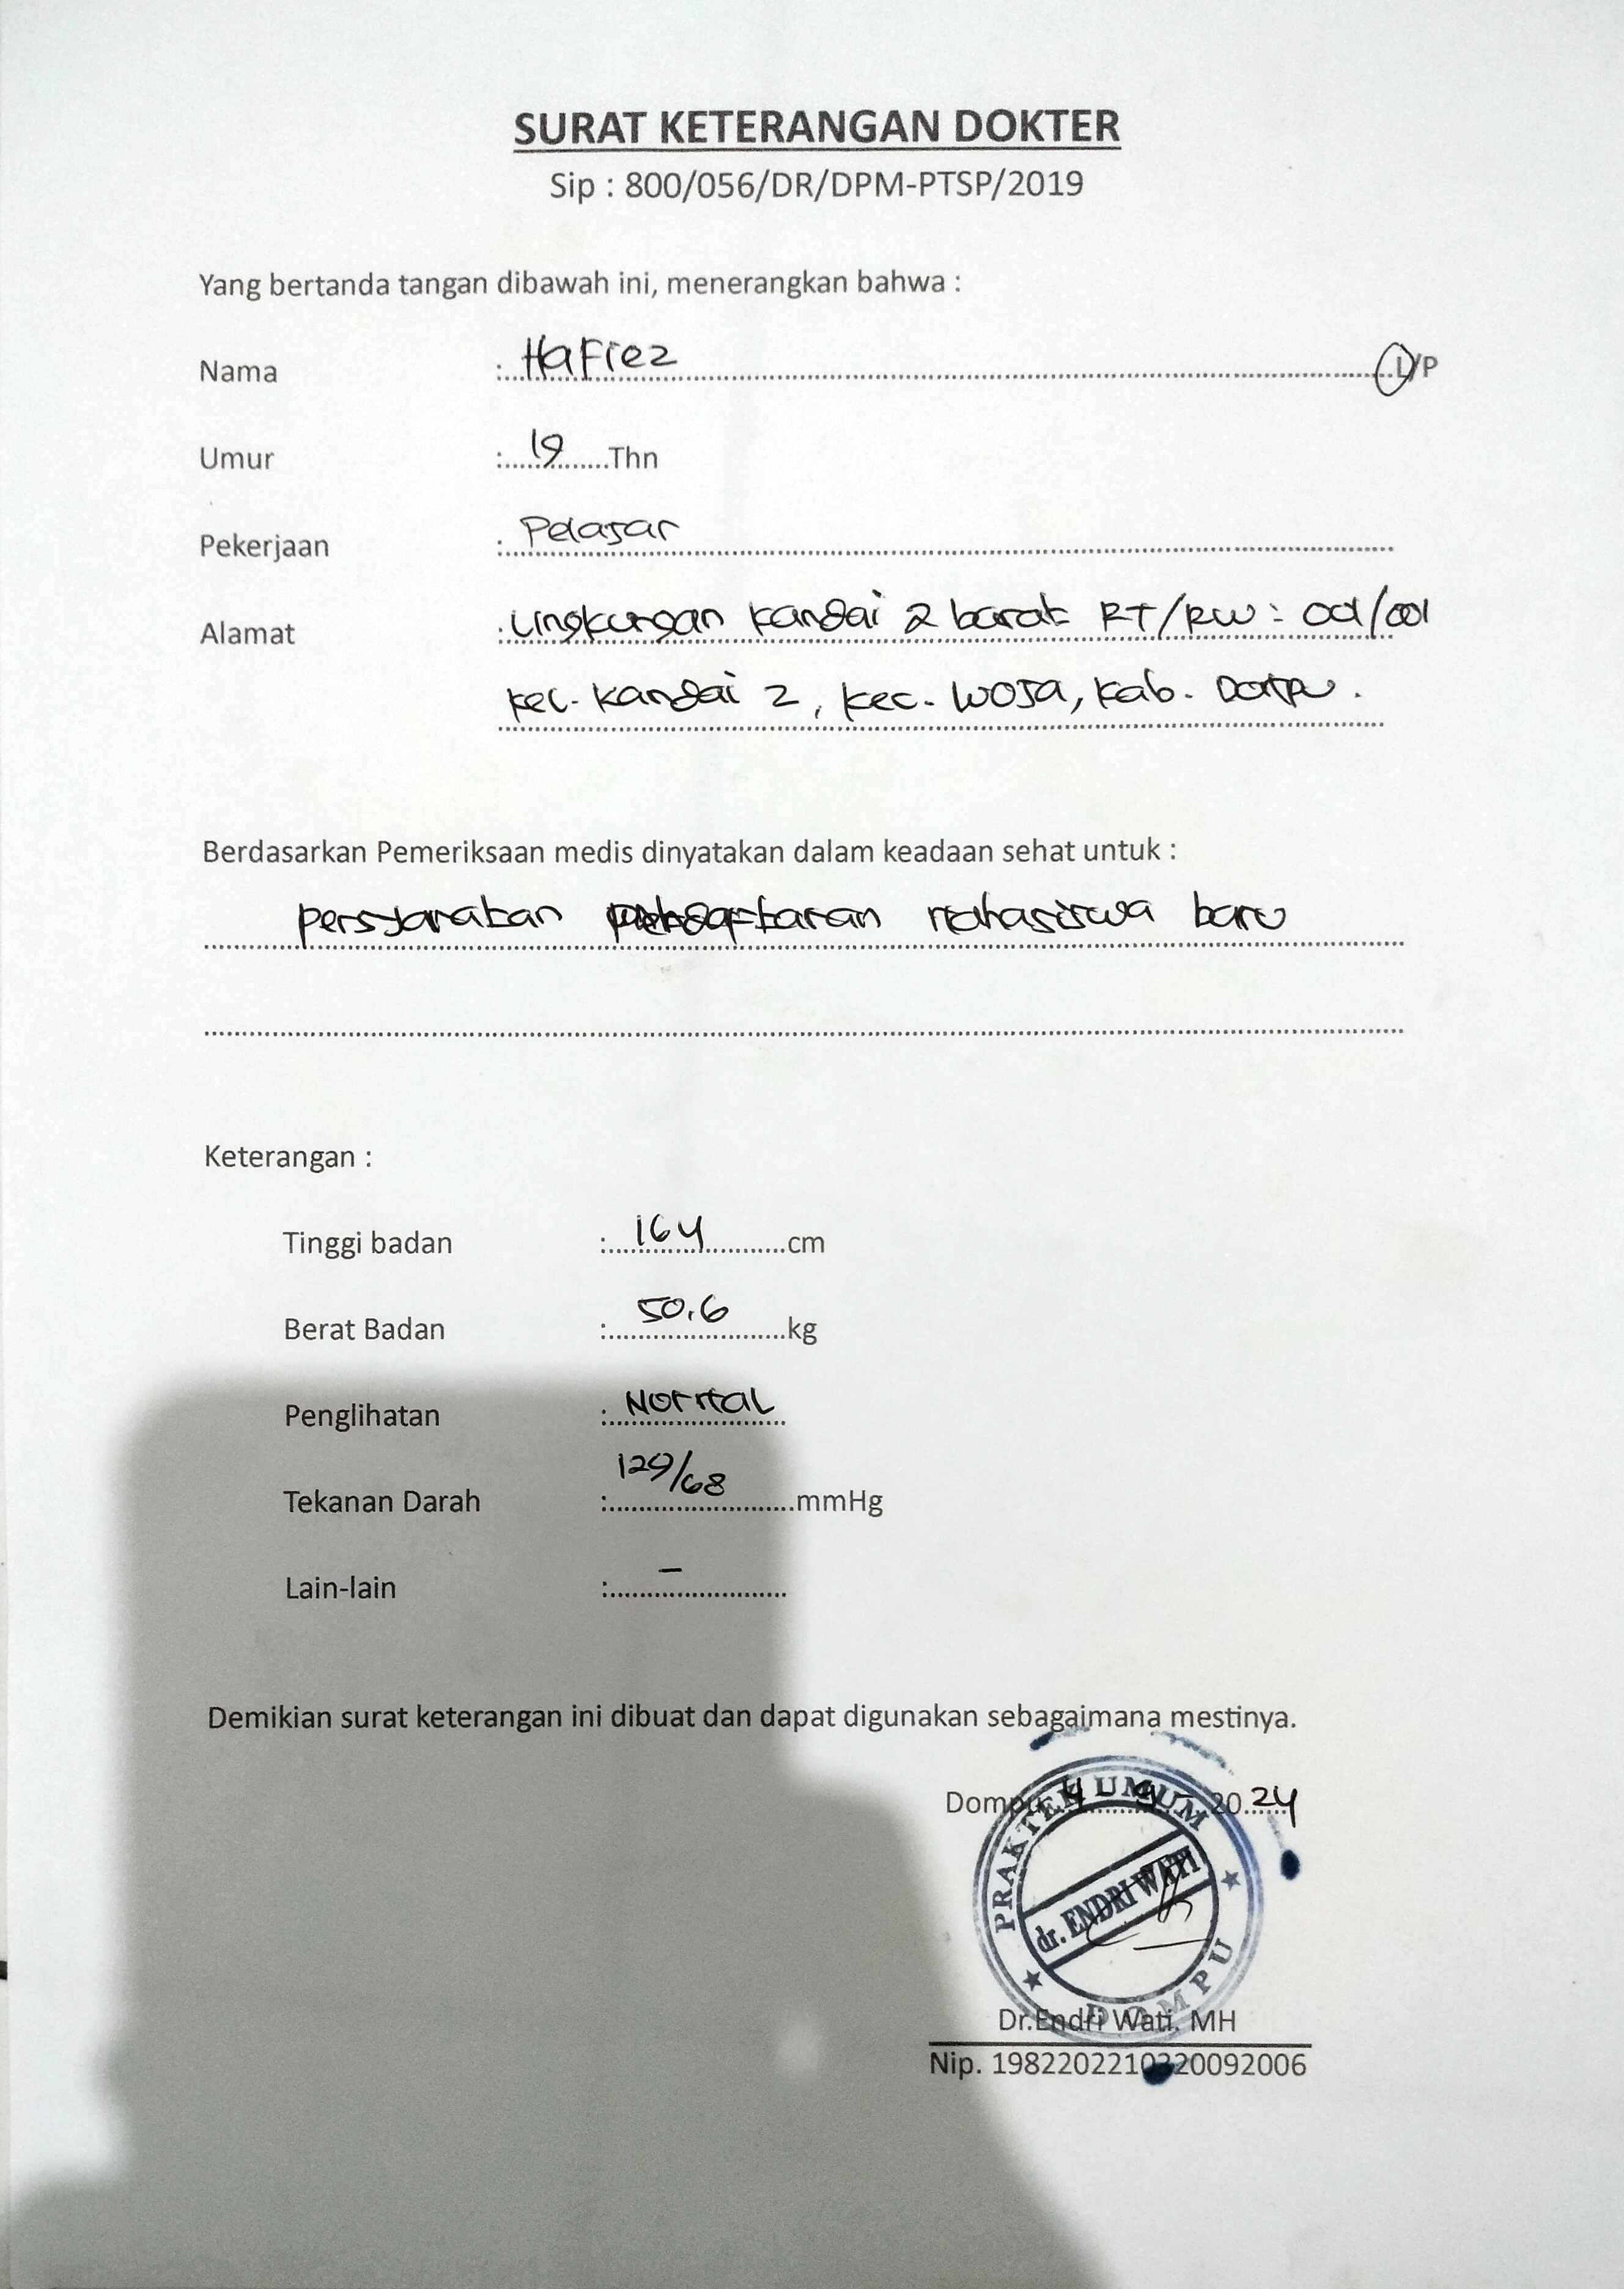 SURAT KETERANGAN DOKTER
Sip : 800/056/DR/DPM-PTSP/2019
Yang bertanda tangan dibawah ini, menerangkan bahwa :
Nama : Hafiez L/P
Umur : 19 Thn
Pekerjaan : Pelajar
Alamat : Lingkungan Kandai 2 barat RT/RW : 001/001
Kec. Kandai 2, Kec. Woja, Kab. Dompu.
Berdasarkan Pemeriksaan medis dinyatakan dalam keadaan sehat untuk :
persyaratan pendaftaran mahasiswa baru
Keterangan :
Tinggi badan : 164 cm
Berat Badan : 50,6 kg
Penglihatan : Normal
Tekanan Darah : 129/68 mmHg
Lain-lain : -
Demikian surat keterangan ini dibuat dan dapat digunakan sebagaimana mestinya.
Dompu, 4 - 9 - 2024
PRAKTEK UMUM
dr. ENDRI WATI
DOMPU
Dr.Endri Wati. MH
Nip.